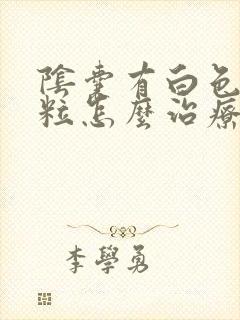 陰囊有白色
粒怎麼治療
李學勇